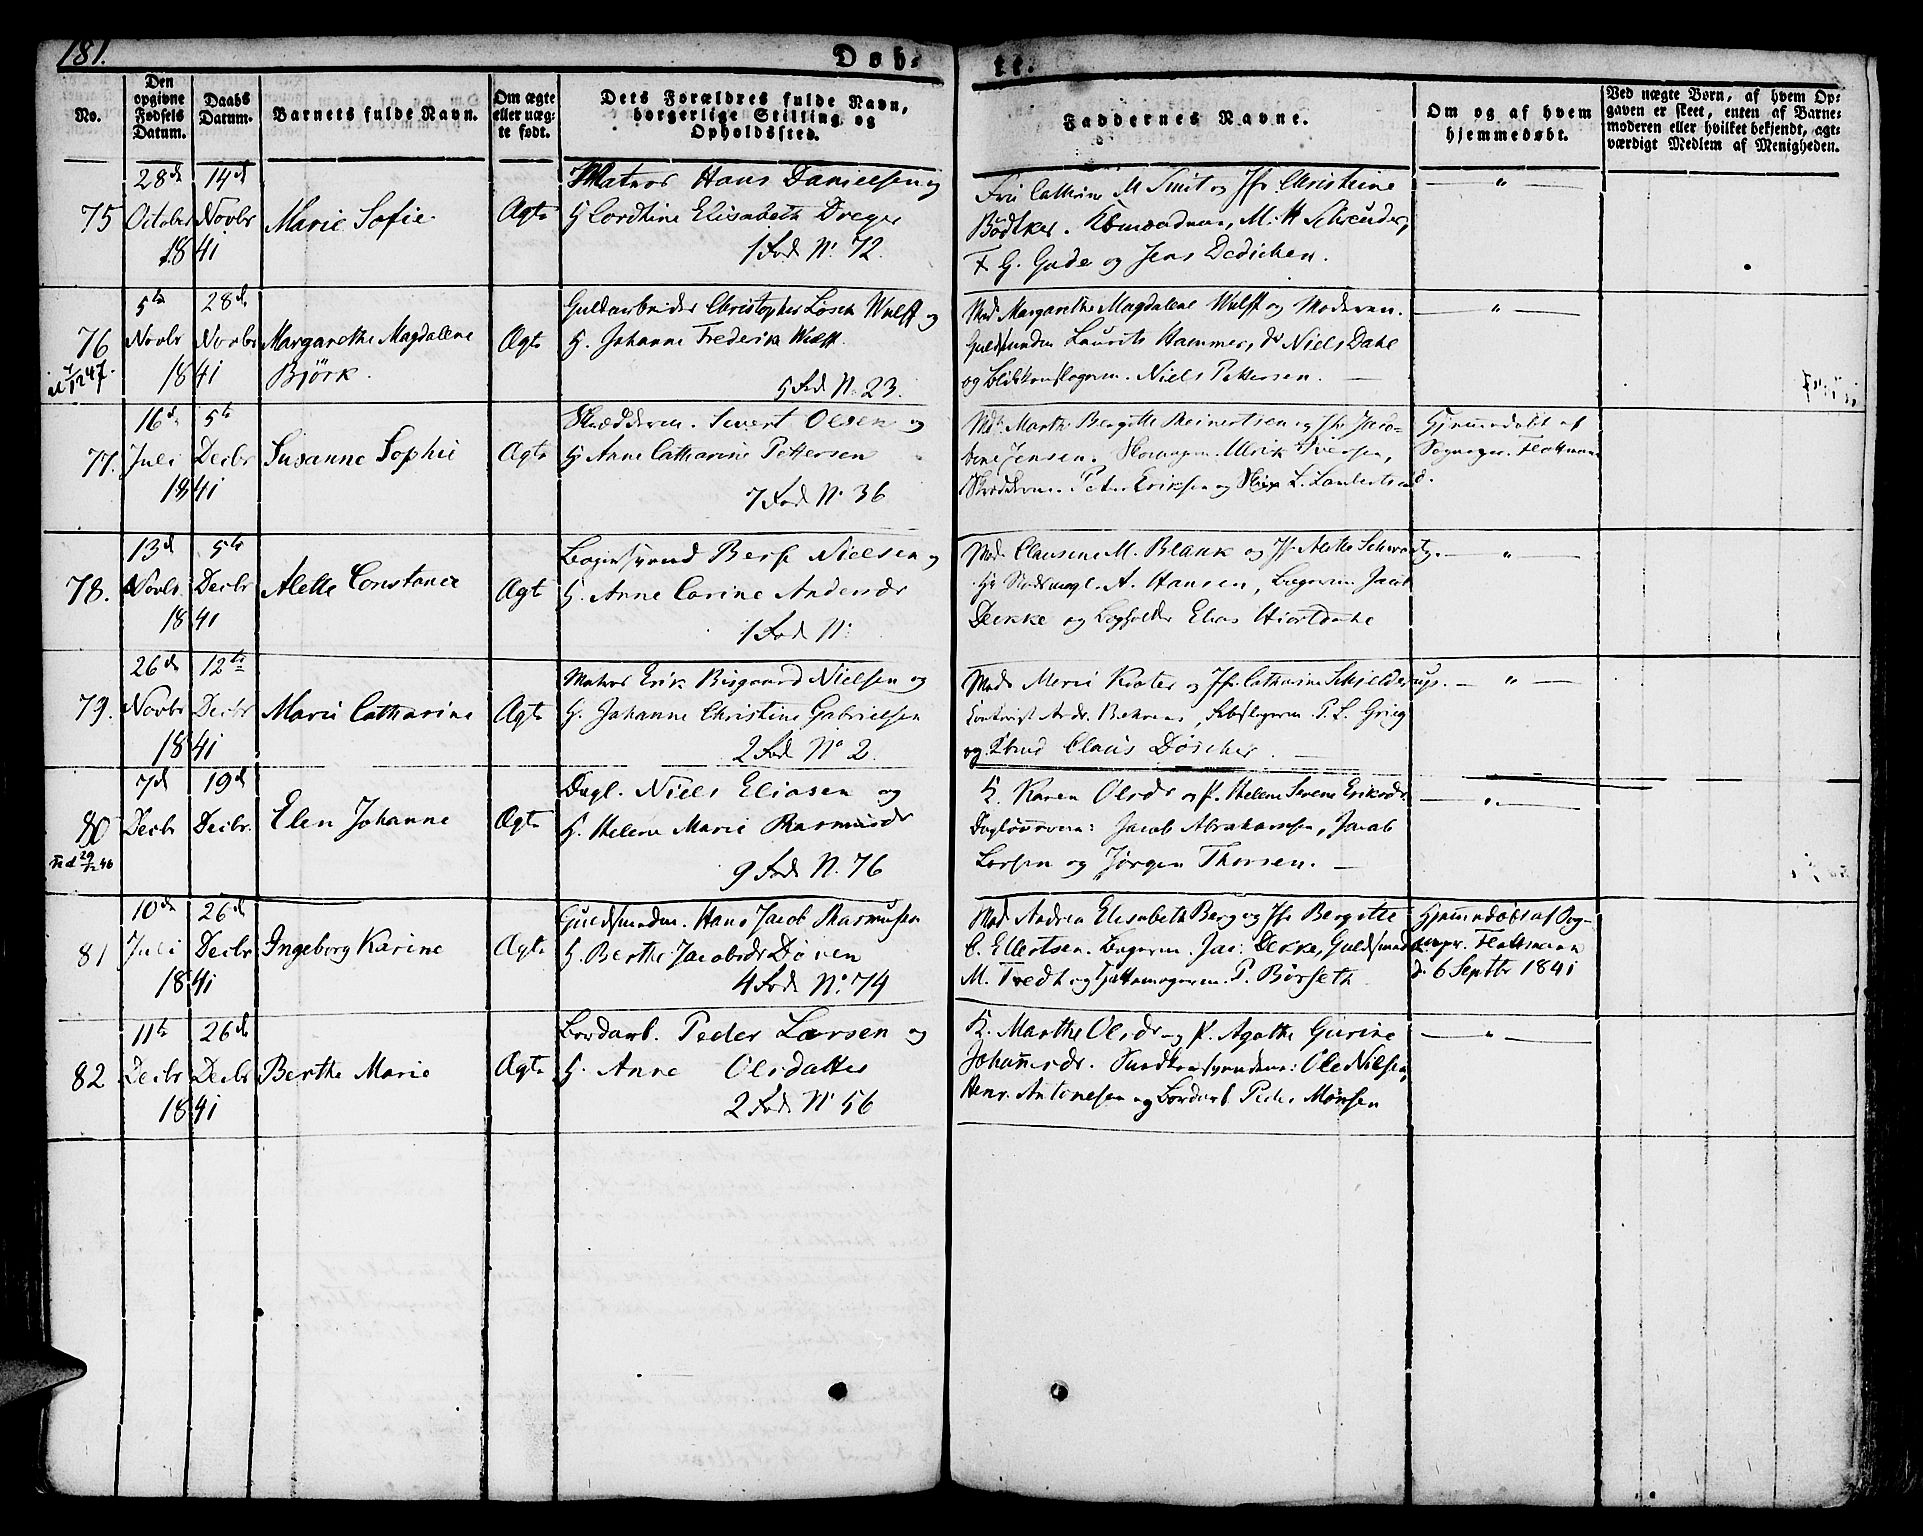 181.
Døb-
te.
No.
Den
opgivne
Fødsels
Datum.
Daabs
Datum.
Barnets fulde Navn.
Om ægte
eller uæg-
te født.
Dets Forældres fulde Navn,
borgerlige Stilling og
Opholdssted.
Faddernes Navne.
Om og af hvem
hjemmedøbt.
Ved uægte Børn, af hvem Op-
gaven er skeet, enten af Barne-
moderen eller hvilket bekjendt, agt-
værdigt Medlem af Menigheden.
75
28de October 1841
14de Novbr
Marie Sofie
Ægte
Matros Hans Danielsen og
H Cordtine Elisabeth Dreyer
1 Fod No 72.
Fru Cathrine M Smit og Jfr Christine
Bødtker. M. H Schreuder,
F G. Gade og Jens Dedichen.
"
76
5te Novbr 1841
28de Novbr
Margarethe Magdalene
Bjørk.
Ægte
Guldarbeider Christopher Wulff og
H. Johanne Frederik Wulff.
5 Fod N. 23.
Mad Margarethe Magdalene Wulff og Moderen.
Guldsmeden Laurits Hammer, Do Niels Dahl
og Niels Pettersen.
"
77.
16de Juli 1841
5te Decbr
Susanne Sophie
Ægte
Skrædderen. Sivert Olsen og
H Anne Catharine Pettersen
7 Fod No 36
Md. Marthe Bergitte Reinertsen og Jfr Jaco-
bine Jensen. Ulrik Iversen,
Skrædderne Peter Eriksen og L. Lambertsen
Hjemmedøbt af
Sogнepr. Flottmann
78.
13de Novbr 1841
5te Decbr
Alette Constance
Ægte
Nielsen og
H. Anne Carine Andersdr
1 Fod N:
Mad. Clausine M. Blank og Jfr Alette Schwartz.
A. Hansen, Bageren Jacob
Dekke og Elias Hiortdahl
"
79.
26de Novbr 1841
12te Decbr
Marie Catharine
Ægte
Matros Erik Bisgaard Nielsen og
H. Johanne Christine Gabrielsen
2 Fod No 2.
Mad Merie Krater og Jfr Catharine Schjelderup.
Andr. Behrens, P. L. Grieg
og Claus Döscher.
"
80
7de Decbr
19de Decbr.
Elen Johanne
Ægte
Dagl. Niels Eliasen og
H. Helene Marie Rasmusdr
9 Fod N. 76
K. Karen Olsdr og P. Helene Serene Eriksdr.
Daglønnerne: Jacob Abrahamsen, Jacob
Larsen og Jørgen Thorsen.
"
81
10de Juli 1841
26de Decbr
Ingeborg Karine
Ægte
Guldsmeden. Hans Jacob Rasmussen
H. Berthe Jacobsdr
4 Fod No 74
Mad Andrea Elisabeth Berg og Jfr Bergitte
C. Ellertsen. Bageren. Jac: Dekke, Guldsmed
M. Tvedt og P. Børseth
Hjemmedøbt af Sog-
nepr. Flottmann
d. 6 Septbr 1841
82
11te Decbr 1841
26de Decbr
Berthe Marie
Ægte
Bordarb. Peder Larsen og
H. Anne Olsdatter
2 Fod No 56
K. Marthe Olsdr og P. Agathe Gurine
Johannesdr. Ole Nilsen,
Henr. Antonesen og Bordarb. Peder Mønsen
"